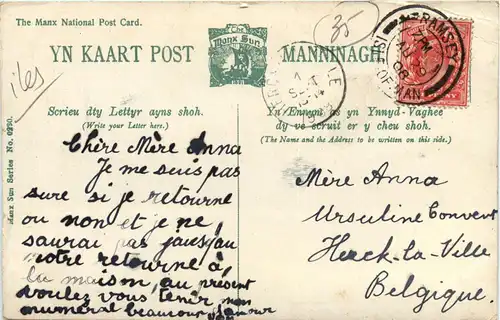 The Manx National Post Card.
YN KAART POST
The
Manx Sun
MANNINAGH
35
RAMSEY
ISLE OF MAN
iles
Scrieu dty Lettyr ayns shoh.
(Write your Letter here.)
Yn Ennym as yn Ynnyd-Vaghee
dy ve scruit er y cheu shoh.
(The Name and the Address to be written on this side.)
Manx Sun Series No. 0290.
Chère Mère Anna
Je me suis pas
sure si je retourne
ou non et je ne
saurai pas
notre retourne à
la maison, au présent
voulez vous tenir mon
numeral beaucoup d'amour
Mère Anna
Ursuline Convent
Haeck-la-Ville
Belgique.